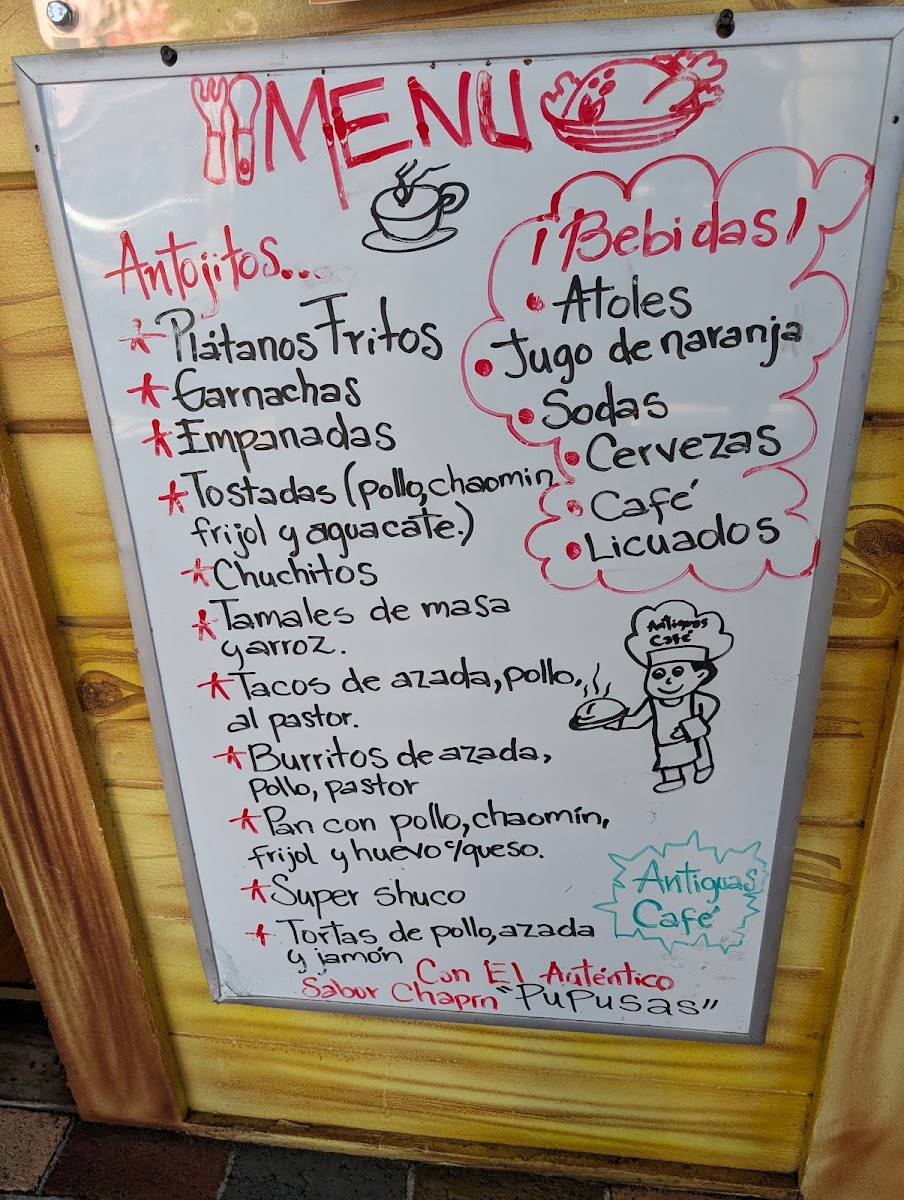 MENU
Antojitos...
* Plátanos Fritos
* Garnachas
* Empanadas
* Tostadas (pollo, chaomin
frijol y aguacate.)
* Chuchitos
* Tamales de masa
y arroz.
* Tacos de azada, pollo,
al pastor.
* Burritos de azada,
Pollo, pastor
* Pan con pollo, chaomín,
frijol y huevo c/queso.
* Super shuco
* Tortas de pollo, azada
y jamón
Con El Auténtico
Sabor Chapín "PUPUSAS"
¡Bebidas!
• Atoles
• Jugo de naranja
• Sodas
• Cervezas
• Café
• Licuados
Antiguas
Café
Antiguas
Café